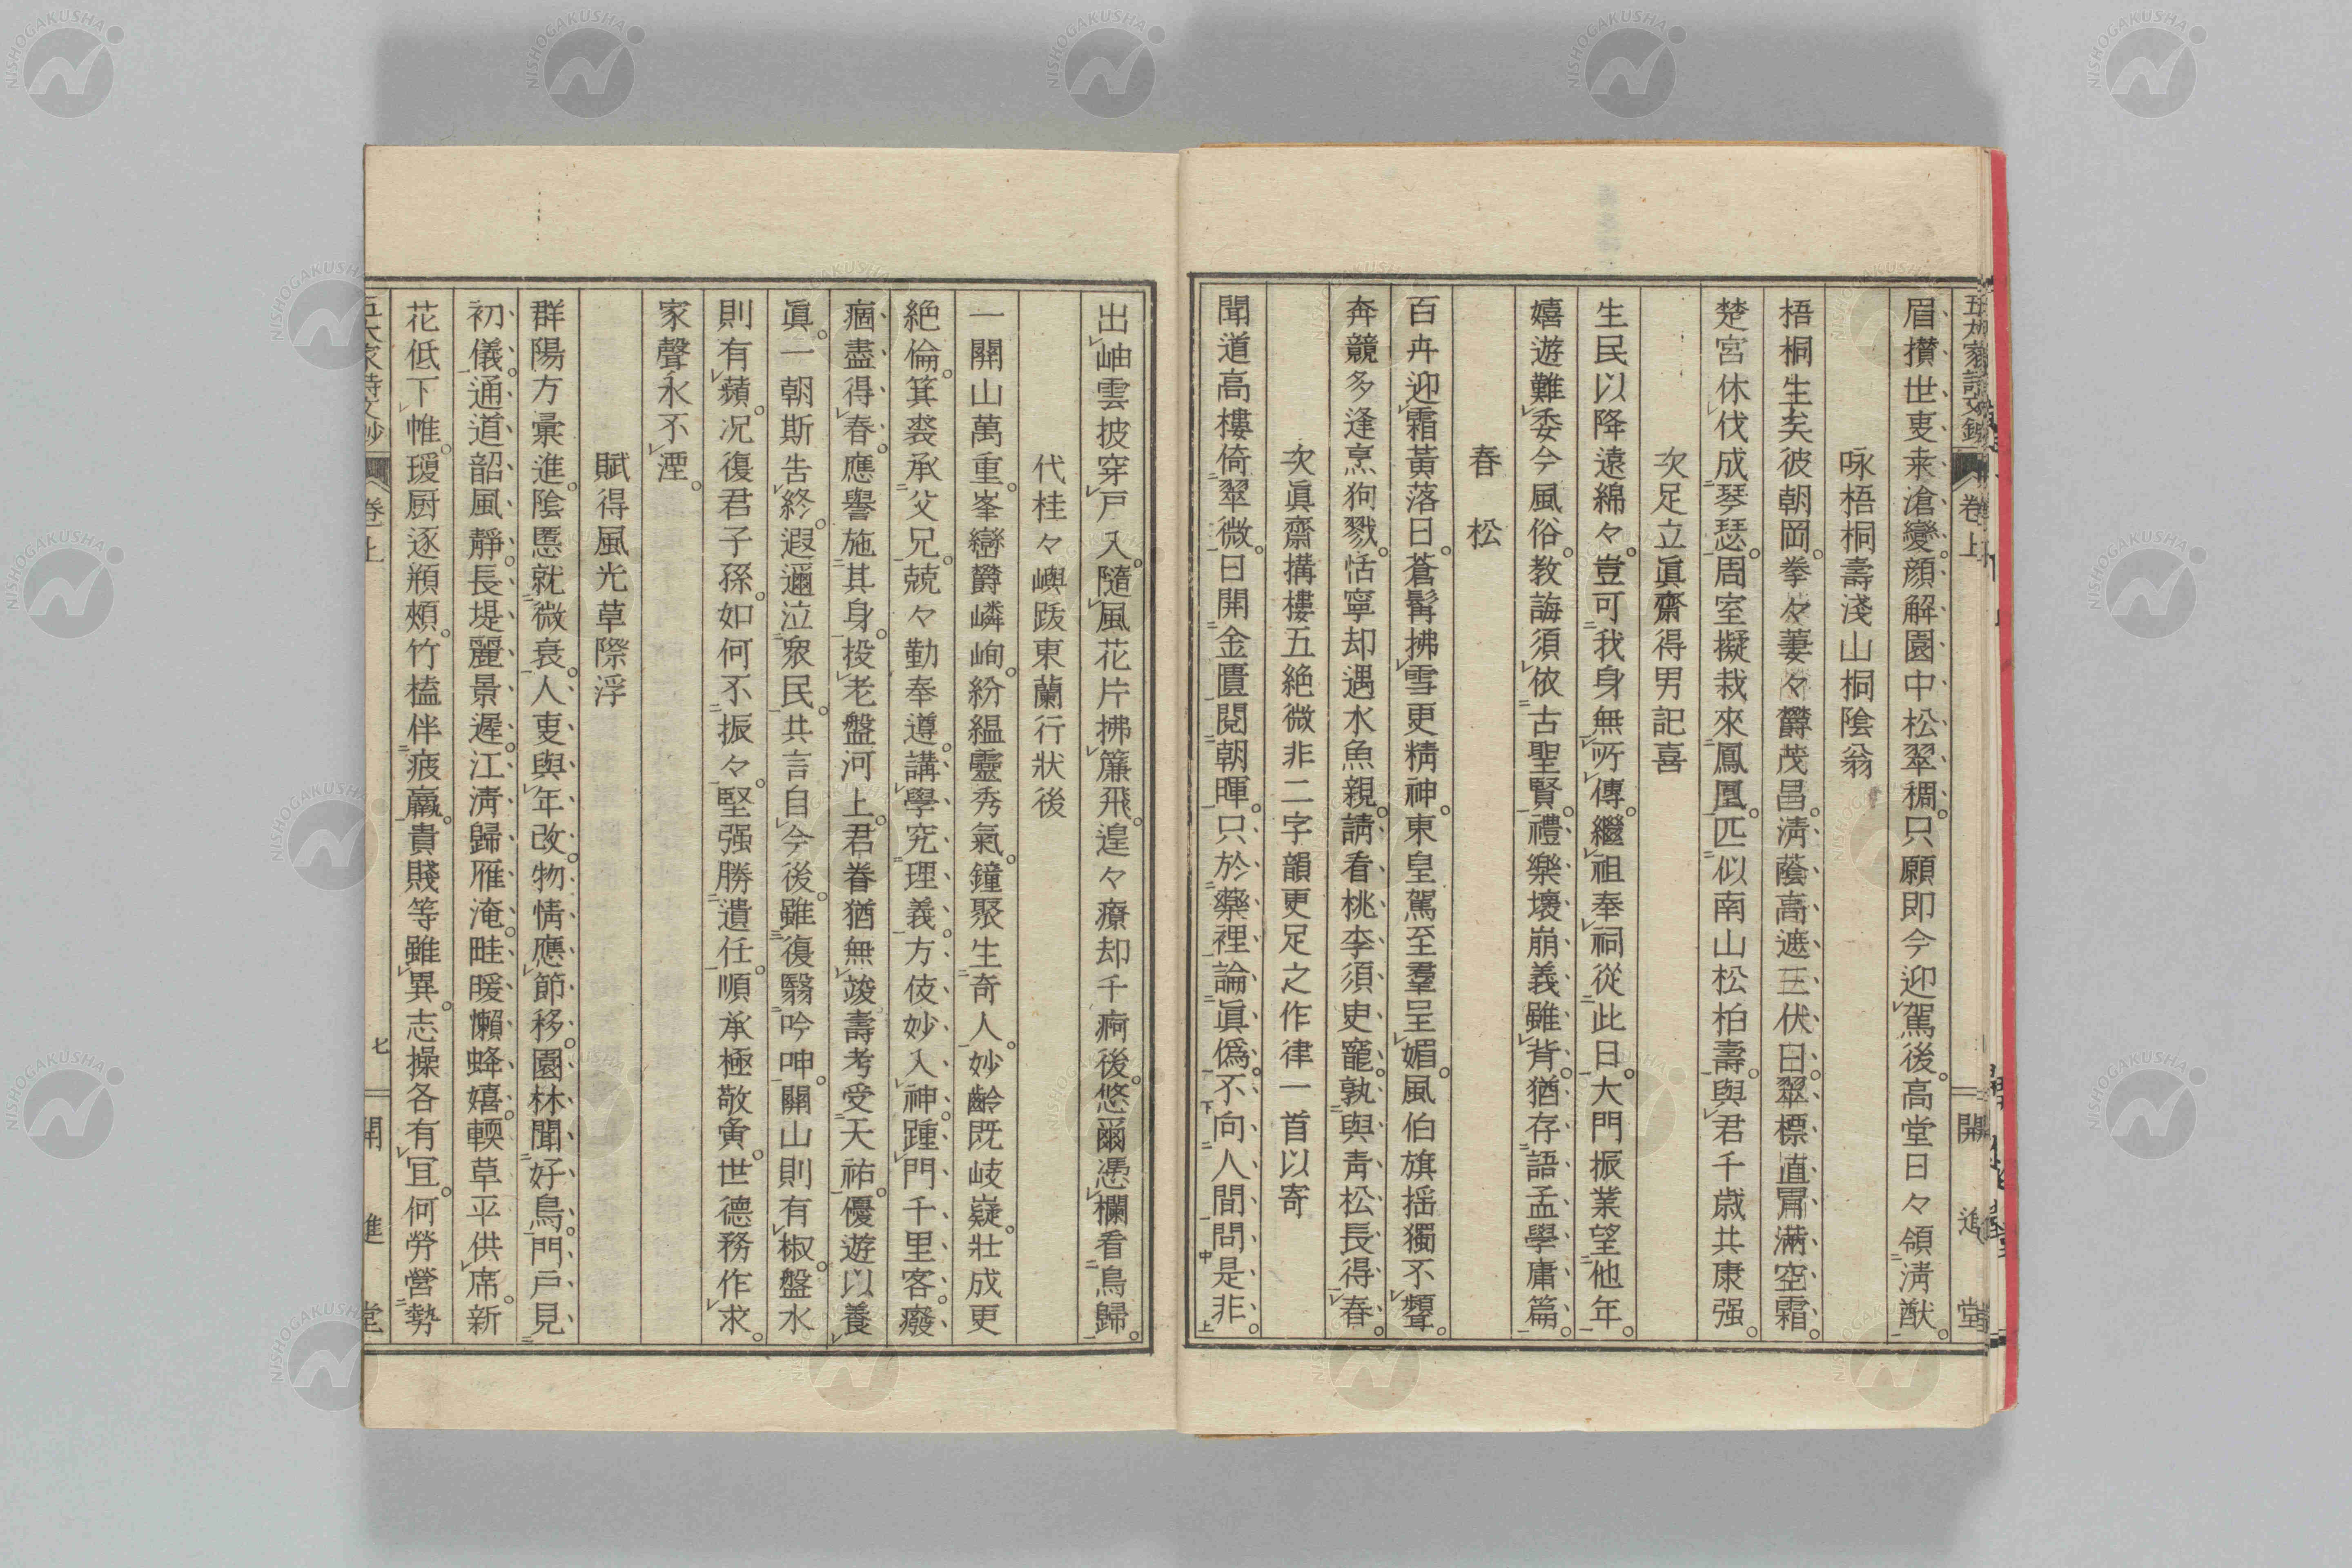 眉攅世叓来滄變。顔解園中松翠稠。只願即今迎駕後。高堂日々領淸猷。
咏梧桐壽淺山桐陰翁
梧桐生矣彼朝岡。拳々萋々欝茂昌。淸蔭高遮三伏日。翠標直冐滿空霜。
楚宮休伐成琴瑟。周室擬栽來鳳凰。匹似南山松柏壽。與君千歳共康强。
次足立眞齋得男記喜
生民以降遠綿々。豈可我身無所傳。繼祖奉祠從此日。大門振業望他年。
嬉遊難委今風俗。教誨須依古聖賢。禮樂壞崩義雖背。猶存語孟學庸篇。
春松
百卉迎霜黃落日。蒼髯拂雪更精神。東皇駕至羣呈媚。風伯旗揺獨不顰。
奔競多逢烹狗戮。恬寧却遇水魚親。請看桃李須臾寵。孰與靑松長得春。
次眞齋搆樓五絶微非二字韻更足之作律一首以寄
聞道高樓倚翠微。日開金匱閱朝暉。只於藥裡論眞僞。不向人間問是非。
出岫雲披穿戸入。隨風花片拂簾飛。遑々療却千痾後。悠爾憑欄看鳥歸。
代桂々嶼跋東蘭行狀後
一關山萬重。峯巒欝嶙峋。紛緼靈秀氣。鐘聚生奇人。妙齡既岐嶷。壯成更
絶倫。箕裘承父兄。兢々勤奉遵。講學究理義。方伎妙入神。踵門千里客。癈
痼盡得春。應譽施其身。投老盤河上。君眷猶無竣。壽考受天祐。優遊以養
眞。一朝斯告終。遐邇泣衆民。共言自今後。雖復翳吟呻。關山則有椒。盤水
則有蘋。况復君子孫。如何不振々。堅强勝遺任。順承極敬夤。世德務作求。
家聲永不湮。
賦得風光草際浮
群陽方彙進。陰慝就微衰。人叓與年改。物情應節移。園林聞好鳥。門戸見
初儀。通道韶風靜。長堤麗景遲。江淸歸雁淹。畦暖懶蜂嬉。輭草平供席。新
花低下帷。瑷厨逐頩頰。竹榼伴疲羸。貴賤等雖異。志操各有冝。何勞營勢
卷上
七
開進堂